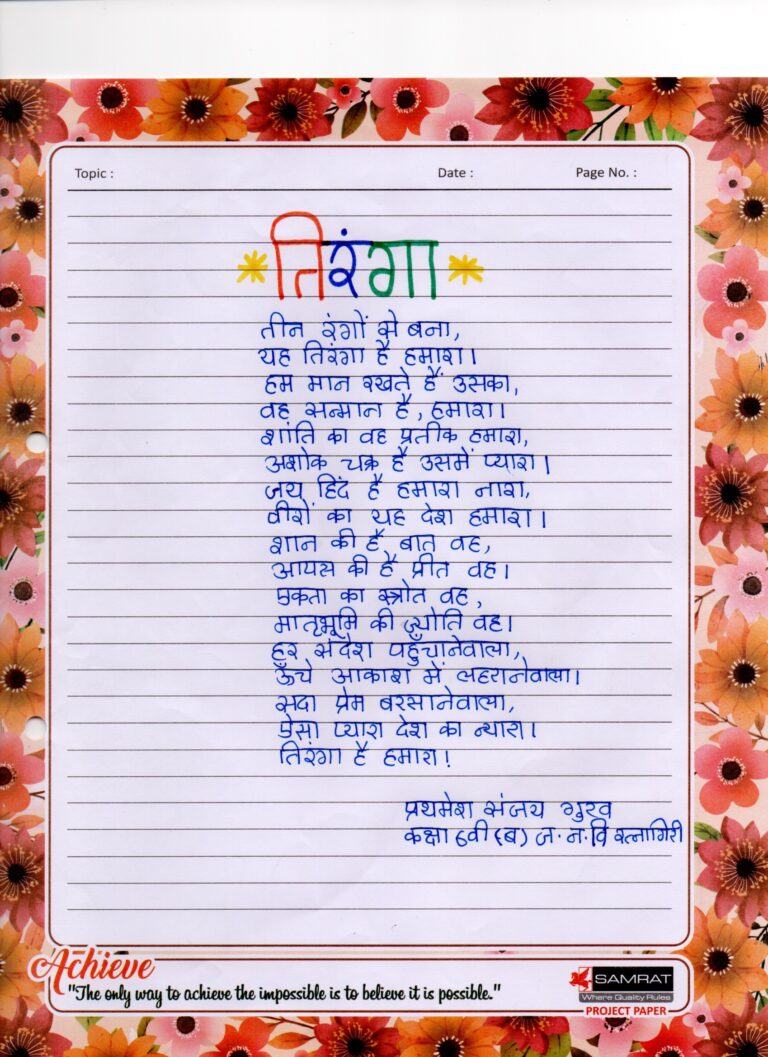 Topic :
Date :
Page No. :
तिरंगा
तीन रंगों से बना,
यह तिरंगा है हमारा।
हम मान रखते हैं उसका,
वह सन्मान है, हमारा।
शांति का वह प्रतीक हमारा,
अशोक चक्र है उसमें प्यारा।
जय हिंद है हमारा नारा,
वीरों का यह देश हमारा।
शान की है बात वह,
आपस की है प्रीत वह।
एकता का स्त्रोत वह,
मातृभूमि की ज्योति वह।
हर संदेश पहुँचानेवाला,
ऊँचे आकाश में लहरानेवाला।
सदा प्रेम बरसानेवाला,
ऐसा प्यारा देश का न्यारा।
तिरंगा है हमारा!
प्रथमेश संजय गुरव
कक्षा 6वी (ब) ज. न. वि रत्नागिरी
Achieve
"The only way to achieve the impossible is to believe it is possible."
SAMRAT
Where Quality Rules
PROJECT PAPER